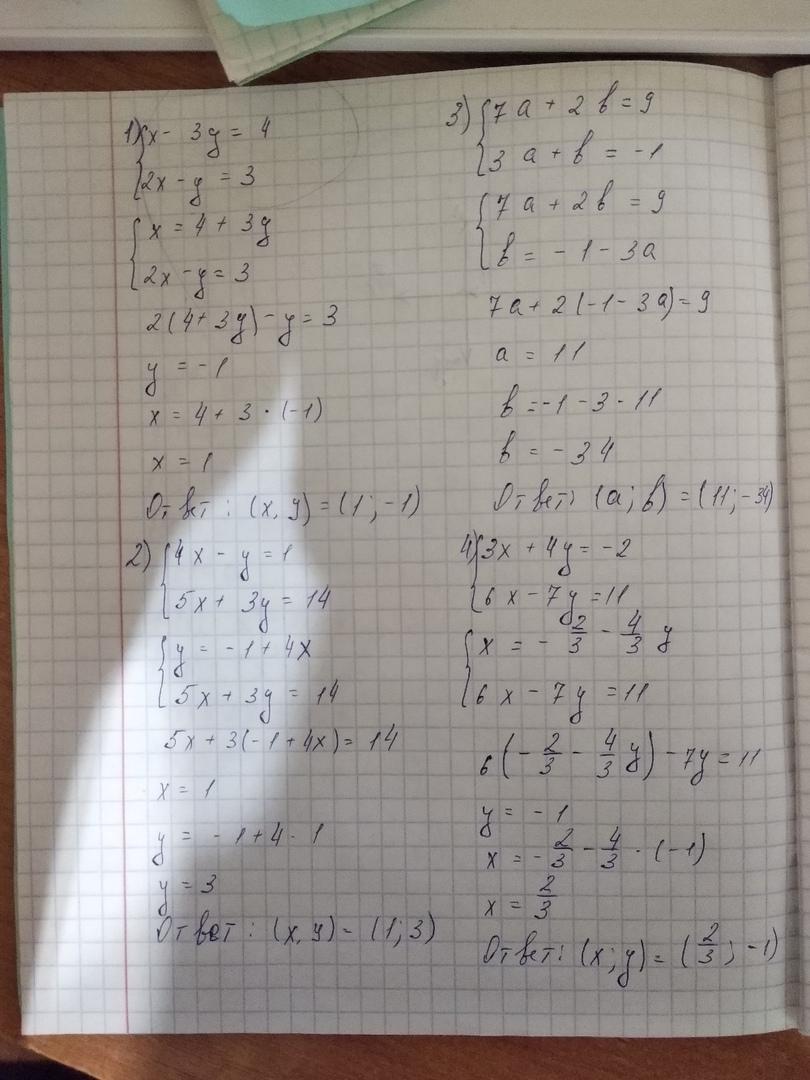 1) { x - 3y = 4
2x - y = 3
{ x = 4 + 3y
2x - y = 3
2(4 + 3y) - y = 3
y = -1
x = 4 + 3 · (-1)
x = 1
Ответ: (x, y) = (1; -1)
2) { 4x - y = 1
5x + 3y = 14
{ y = -1 + 4x
5x + 3y = 14
5x + 3(-1 + 4x) = 14
x = 1
y = -1 + 4 · 1
y = 3
Ответ: (x, y) = (1; 3)
3) { 7a + 2b = 9
3a + b = -1
{ 7a + 2b = 9
b = -1 - 3a
7a + 2(-1 - 3a) = 9
a = 11
b = -1 - 3 · 11
b = -34
Ответ: (a; b) = (11; -34)
4) { 3x + 4y = -2
6x - 7y = 11
{ x = -2/3 - 4/3 y
6x - 7y = 11
6(-2/3 - 4/3 y) - 7y = 11
y = -1
x = -2/3 - 4/3 · (-1)
x = 2/3
Ответ: (x; y) = (2/3; -1)